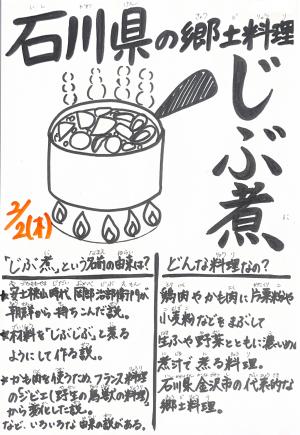 石川県の郷土料理
じぶ煮
2/2(木)
「じぶ煮」という名前の由来は?
★安土桃山時代 岡部治部衛門が
朝鮮から持ちこんだ説。
★材料を「じぶじぶ」と煮る
ようにして作る説。
★かも肉を使うため、フランス料理
のジビエ(野生の鳥獣の料理)
から変化した説。
など、いろいろな由来の説がある。
どんな料理なの?
鶏肉やかも肉に片栗粉や
小麦粉などをまぶして
生ふや野菜とともに濃いめの
煮汁で煮る料理。
石川県金沢市の代表的な
郷土料理。